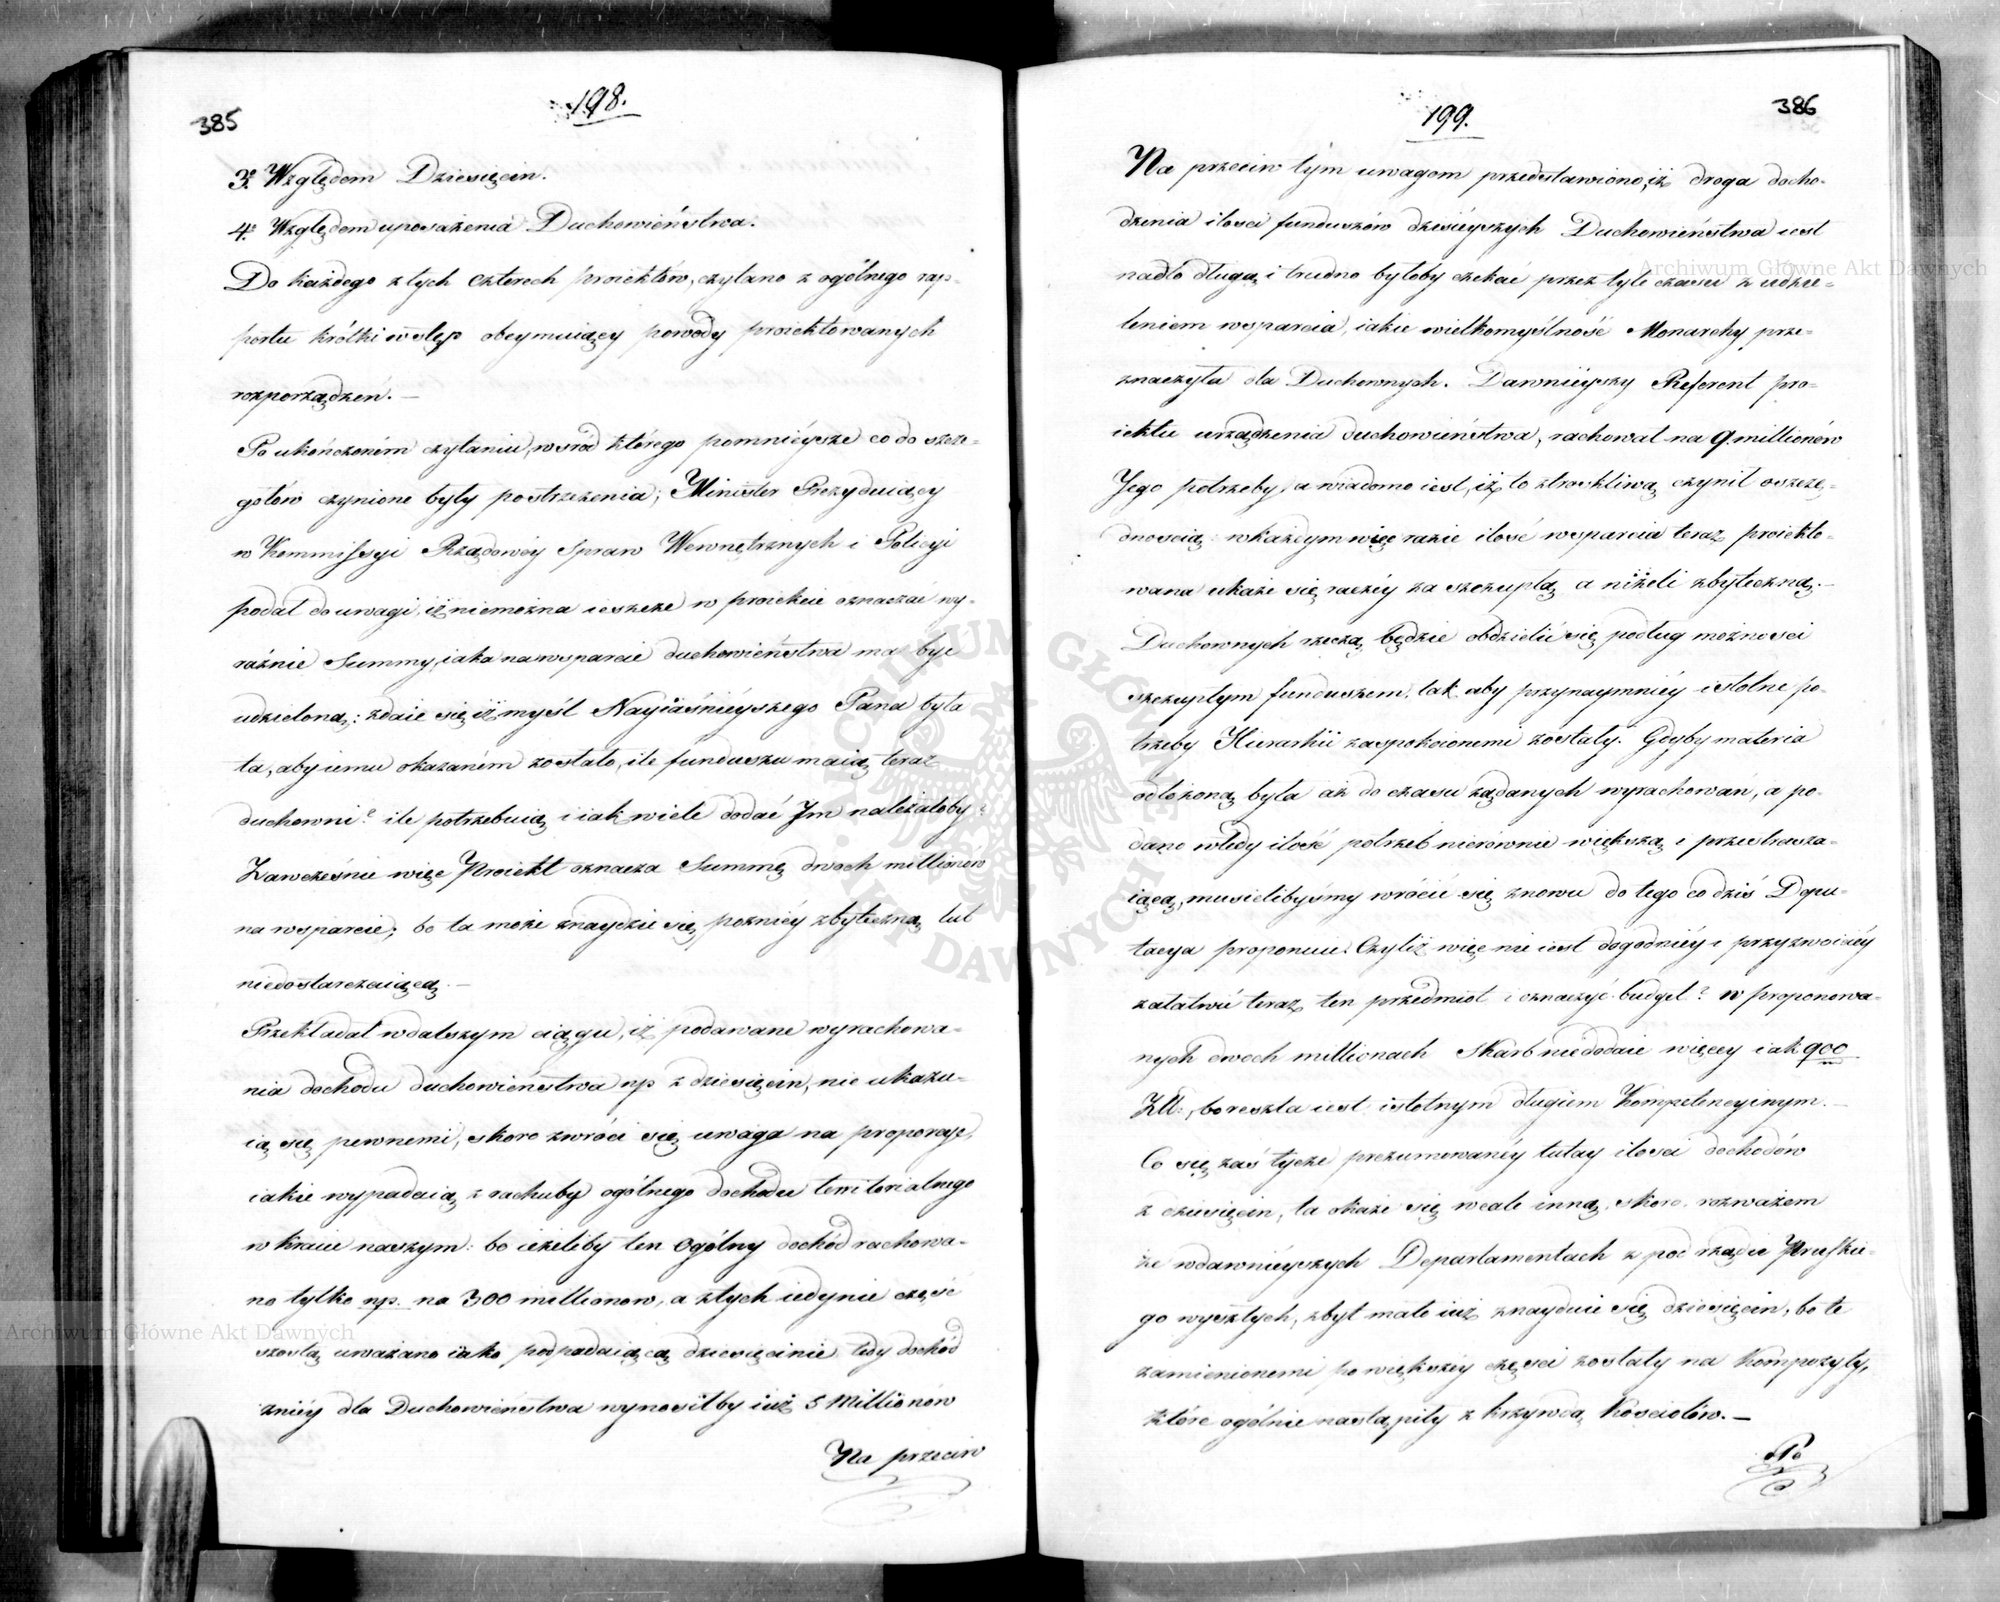 385
198.
3º Względem Dziesięcin.
4º Względem uposażenia Duchowieństwa.
Do każdego z tych czterech proiektów, czytano z ogólnego rap-
portu krótki wstęp obeymuiący powody proiektowanych
rozporządzeń. —
Po ukończoném czytaniu, wsród którego pomnieysze co do szcze-
gółów czynione były postrzeżenia; Minister Prezyduiący
w Kommissyi Rządowéy Spraw Wewnętrznych i Policyi
podał do uwagi, iż niemożna ieszcze w proiekcie oznaczać wy-
raźnie Summy, iaka na wsparcie duchowieństwa ma być
udzieloną; zdaie się iż myśl Nayiaśnieyszego Pana była
ta, aby iemu okazaném zostało, ile funduszu maią teraz
duchowni? ile potrzebuią i iak wiele dodać Im należałoby?
Zawcześnie więc Proiekt oznacza Summę dwóch millionów
na wsparcie; bo ta może znaydzie się poźniéy zbyteczną lub
niedostarczaiącą. —
Przekładał w dalszym ciągu, iż podawane wyrachowa-
nia dochodu duchowieństwa np z dziesięcin, nie ukazu-
ią się pewnemi, skoro zwróci się uwaga na proporcye,
iakie wypadaią z rachuby ogólnego dochodu territorialnego
w kraiu naszym: bo ieżeliby ten ogólny dochód rachowa-
no tylko np. na 300 millionow, a z tych iedynie część
szostą uważano iako podpadaiącą dziesięcinie tedy dochód
zniéy dla Duchowieństwa wynosiłby iuż 5 Millionów
Na przeciw
386
199.
Na przeciw tym uwagom przedstawiono, iż droga docho-
dzenia ilosci funduszów dzisieyszych Duchowieństwa iest
nadto długą, i trudno byłoby czekać przez tyle czasu z udzie-
leniem wsparcia, iakie wielkomyślność Monarchy prze-
znaczyła dla Duchownych. Dawnieyszy Referent pro-
iektu urządzenia duchowieństwa, rachował na 9. millionów
Jego potrzeby, a wiadomo iest, iż to z troskliwą czynił oszczę-
dnoscią: w każdym więc razie ilość wsparcia teraz proiekto-
wana ukaże się raczéy za szczupłą a niżeli zbyteczną. —
Duchownych rzeczą będzie obdzielić się podług możnosci
szczupłym funduszem, tak aby przynaymniéy istotne po-
trzeby Hierarhii zaspokoionemi zostały. Gdyby materia
odłożoną była aż do czasu żądanych wyrachowań, a po-
dano wtedy ilość potrzeb nierównie większą i przestrasza-
iącą, musielibyśmy wrócić się znowu do tego co dziś Depu-
tacya proponuie. Czyliż więc nie iest dogodniéy i przyzwoiciéy
załatwić teraz ten przedmiot i oznaczyć budget? w proponowa-
nych dwoch millionach Skarb niedodaie więcéy iak 900
Złł:, bo reszta iest istotnym długiem Kompetencyinym. —
Co się zaś tycze prezumowanéy tutay ilosci dochodów
z dziesięcin, ta okaże się wcale inną, skoro rozważem
że w dawnieyszych Departamentach z pod rządu Pruskie-
go wyszłych, zbyt mało iuż znayduie się dziesięcin, bo te
zamienionemi po większéy części zostały na Kompozyty,
które ogólnie nastąpiły z krzywdą Kosciołów. —
Po
Archiwum Główne Akt Dawnych
Archiwum Główne Akt Dawnych
ARCHIWUM GŁÓWNE AKT DAWNYCH